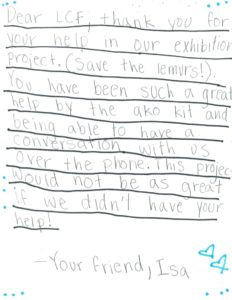 Dear LCF, thank you for
your help in our exhibition
project. (Save the lemurs!).
You have been such a great
help by the ako kit and
being able to have a
conversation with us
over the phone. This project
would not be as great
if we didn't have your
help!
-Your friend, Isa